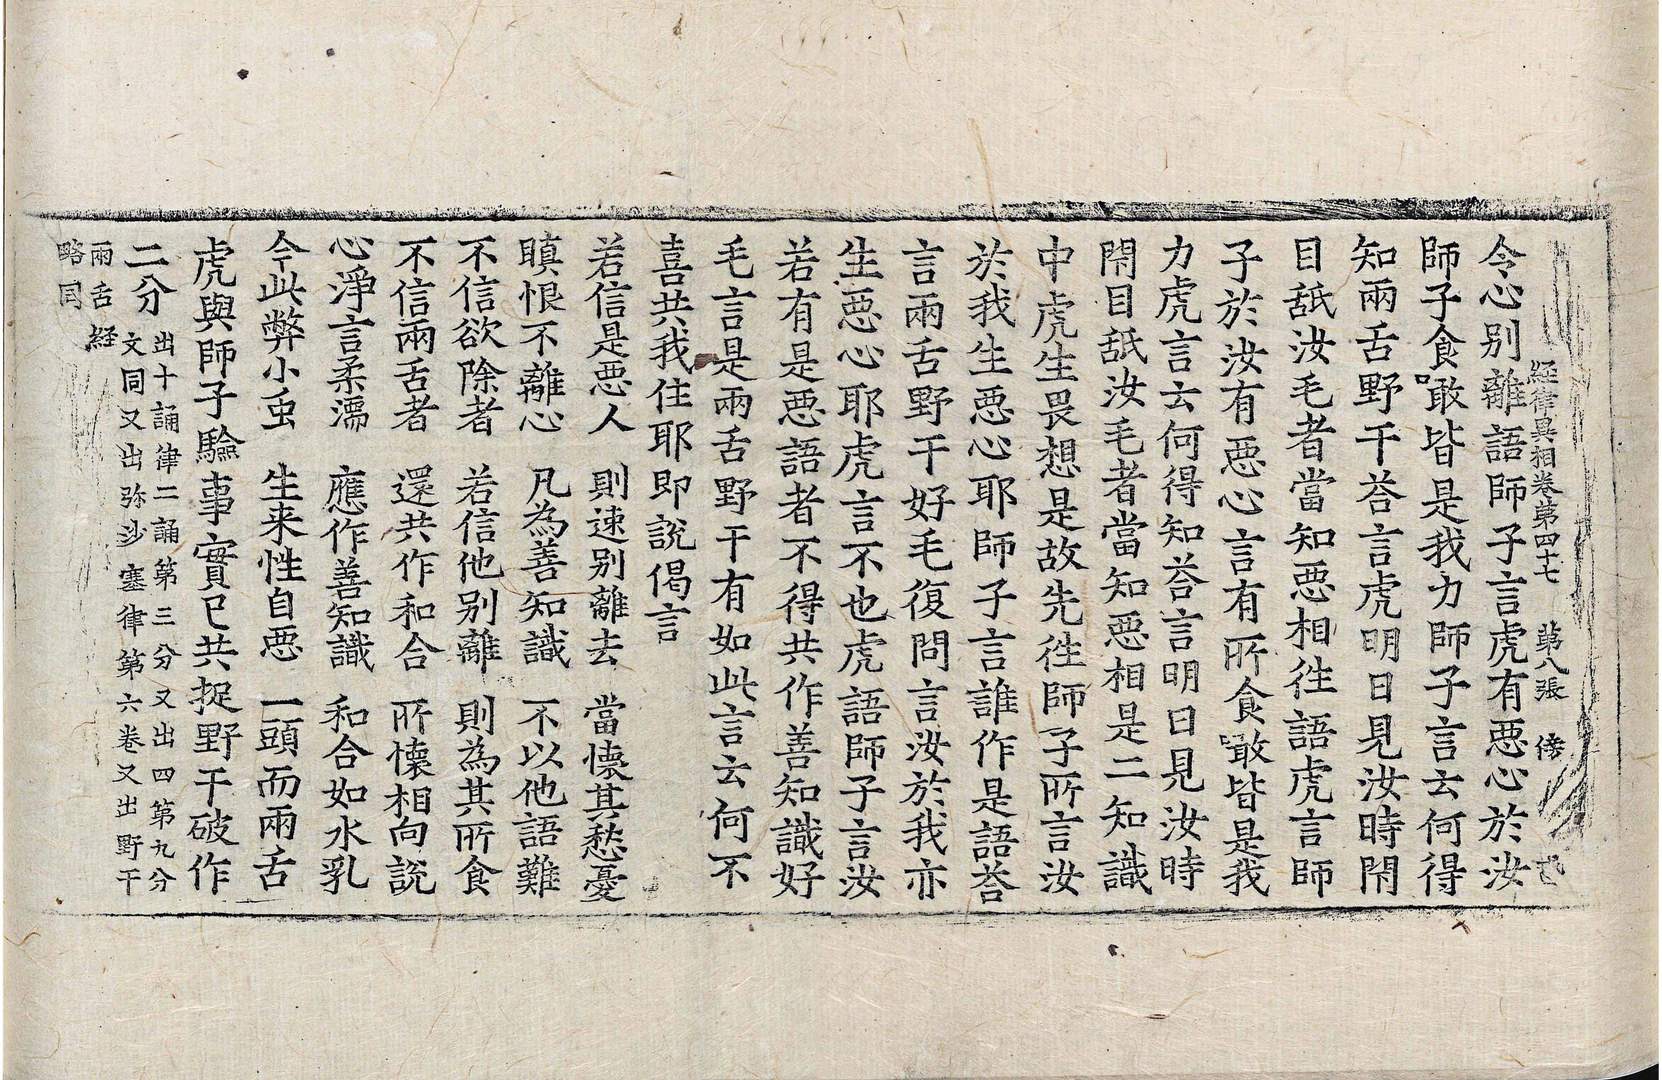 經律異相卷第四十七 第八張 傍
令心别離語師子言虎有惡心於汝
師子食噉皆是我力師子言云何得
知兩舌野干荅言虎明日見汝時閇
目舐汝毛者當知惡相徃語虎言師
子於汝有惡心言有所食噉皆是我
力虎言云何得知荅言明日見汝時
閇目舐汝毛者當知惡相是二知識
中虎生畏想是故先徃師子所言汝
於我生惡心耶師子言誰作是語荅
言兩舌野干好毛復問言汝於我亦
生惡心耶虎言不也虎語師子言汝
若有是惡語者不得共作善知識好
毛言是兩舌野干有如此言云何不
喜共我住耶即說偈言
若信是惡人 則速别離去 當懷其愁憂
瞋恨不離心 凡為善知識 不以他語難
不信欲除者 若信他别離 則為其所食
不信兩舌者 還共作和合 所懷相向說
心淨言柔濡 應作善知識 和合如水乳
今此弊小虫 生来性自惡 一頭而兩舌
虎與師子驗事實已共捉野干破作
二分
出十誦律二誦第三分又出四第九分
文同又出弥沙塞律第六卷又出野干
兩舌経
略同